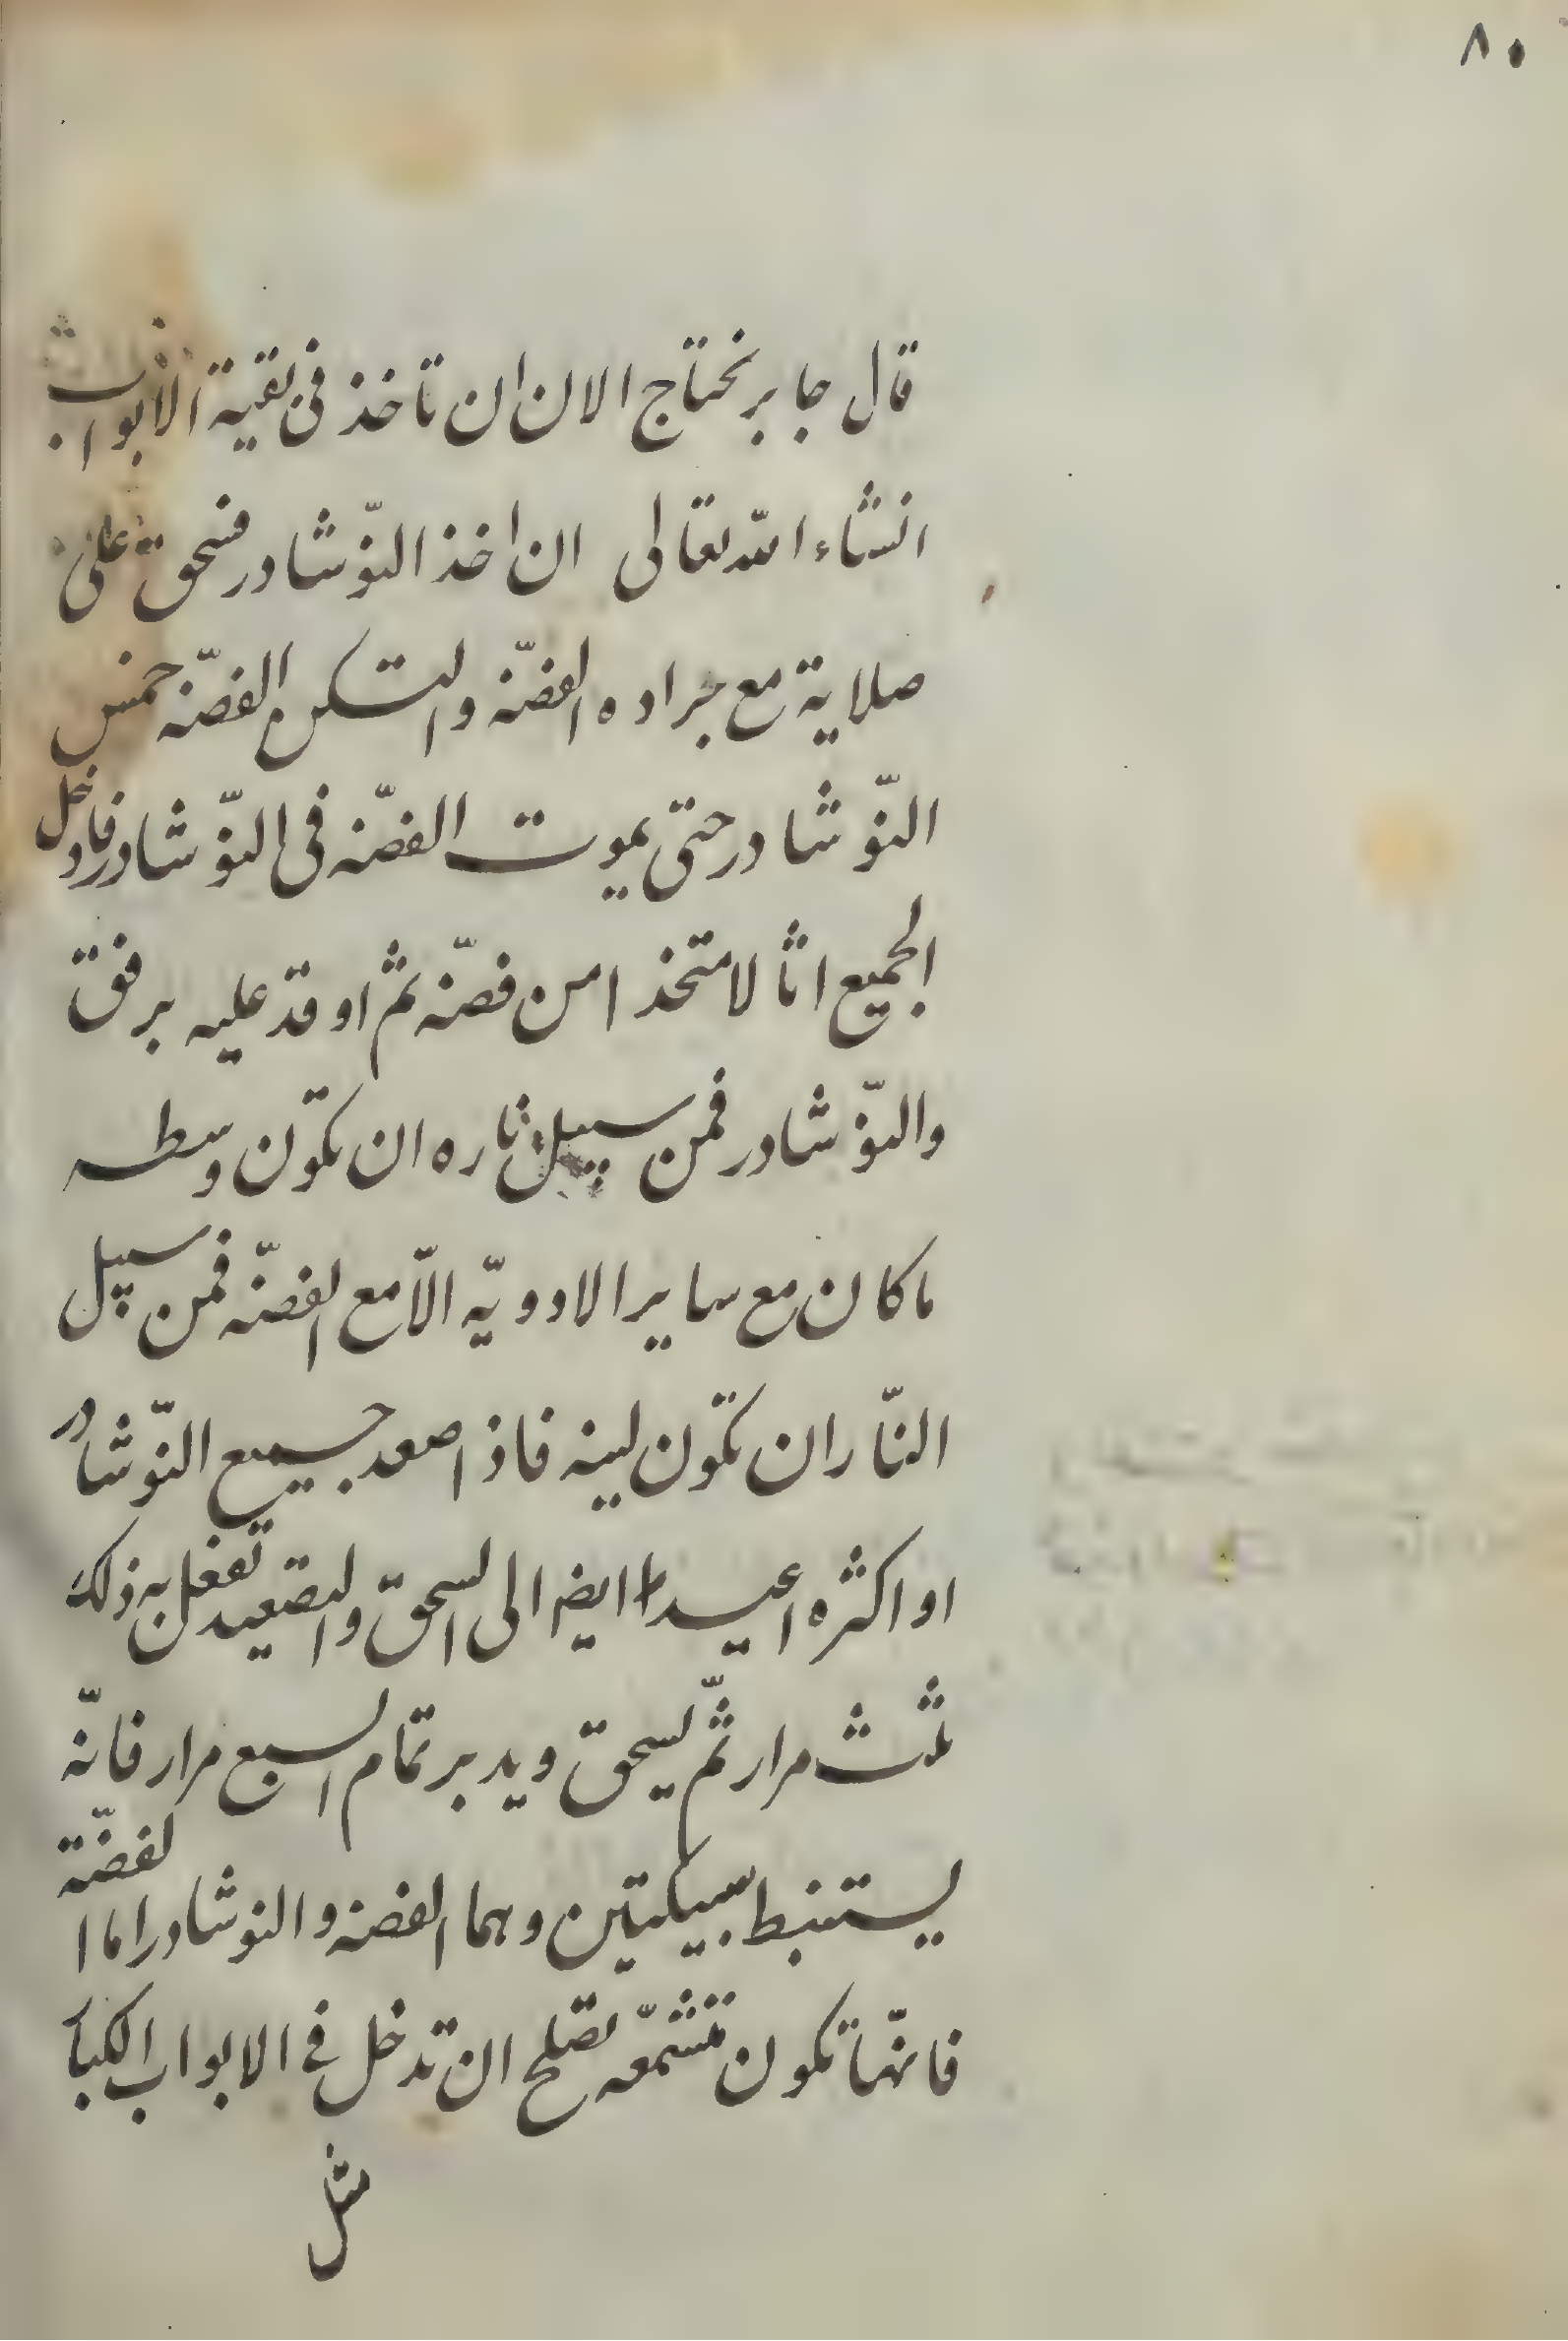 ٨٠
قال جابر نحتاج الان ان تاخذ فى بقية الابواب
انشاء الله تعالى ان اخذ النّوشادر فسحق على
صلاية مع براده الفضّه والتسكن الفضّه خمس
النّوشادر حتى يموت الفضّه فى النّوشادر فادخل
الجميع اثالا متخذا من فضّه ثم اوقد عليه برفق
والنّوشادر فمن سبيل ناره ان تكون وسطه
ما كان مع ساير الادويّه الّا مع الفضّه فمن سبيل
النّار ان تكون لينه فاذا صعد جميع النّوشادر
او اكثره اعيدا ايضا الى السحق والتصعيد تفعل به ذلك
ثلث مرار ثمّ يسحق ويدبر تمام السبع مرار فانّه
يستنبط سبيكتين وهما الفضه والنوشادر اما الفضّة
فانّها تكون متشمّعه تصلح ان تدخل فى الابواب الكبار
مثل